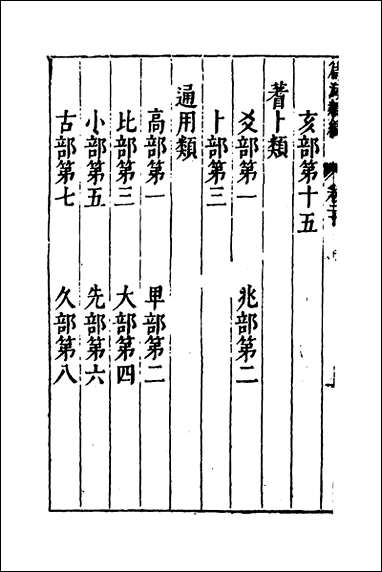 篇海類編 卷二十
亥部第十五
蓍卜類
爻部第一 兆部第二
卜部第三
通用類
高部第一 卑部第二
比部第三 大部第四
小部第五 先部第六
古部第七 久部第八